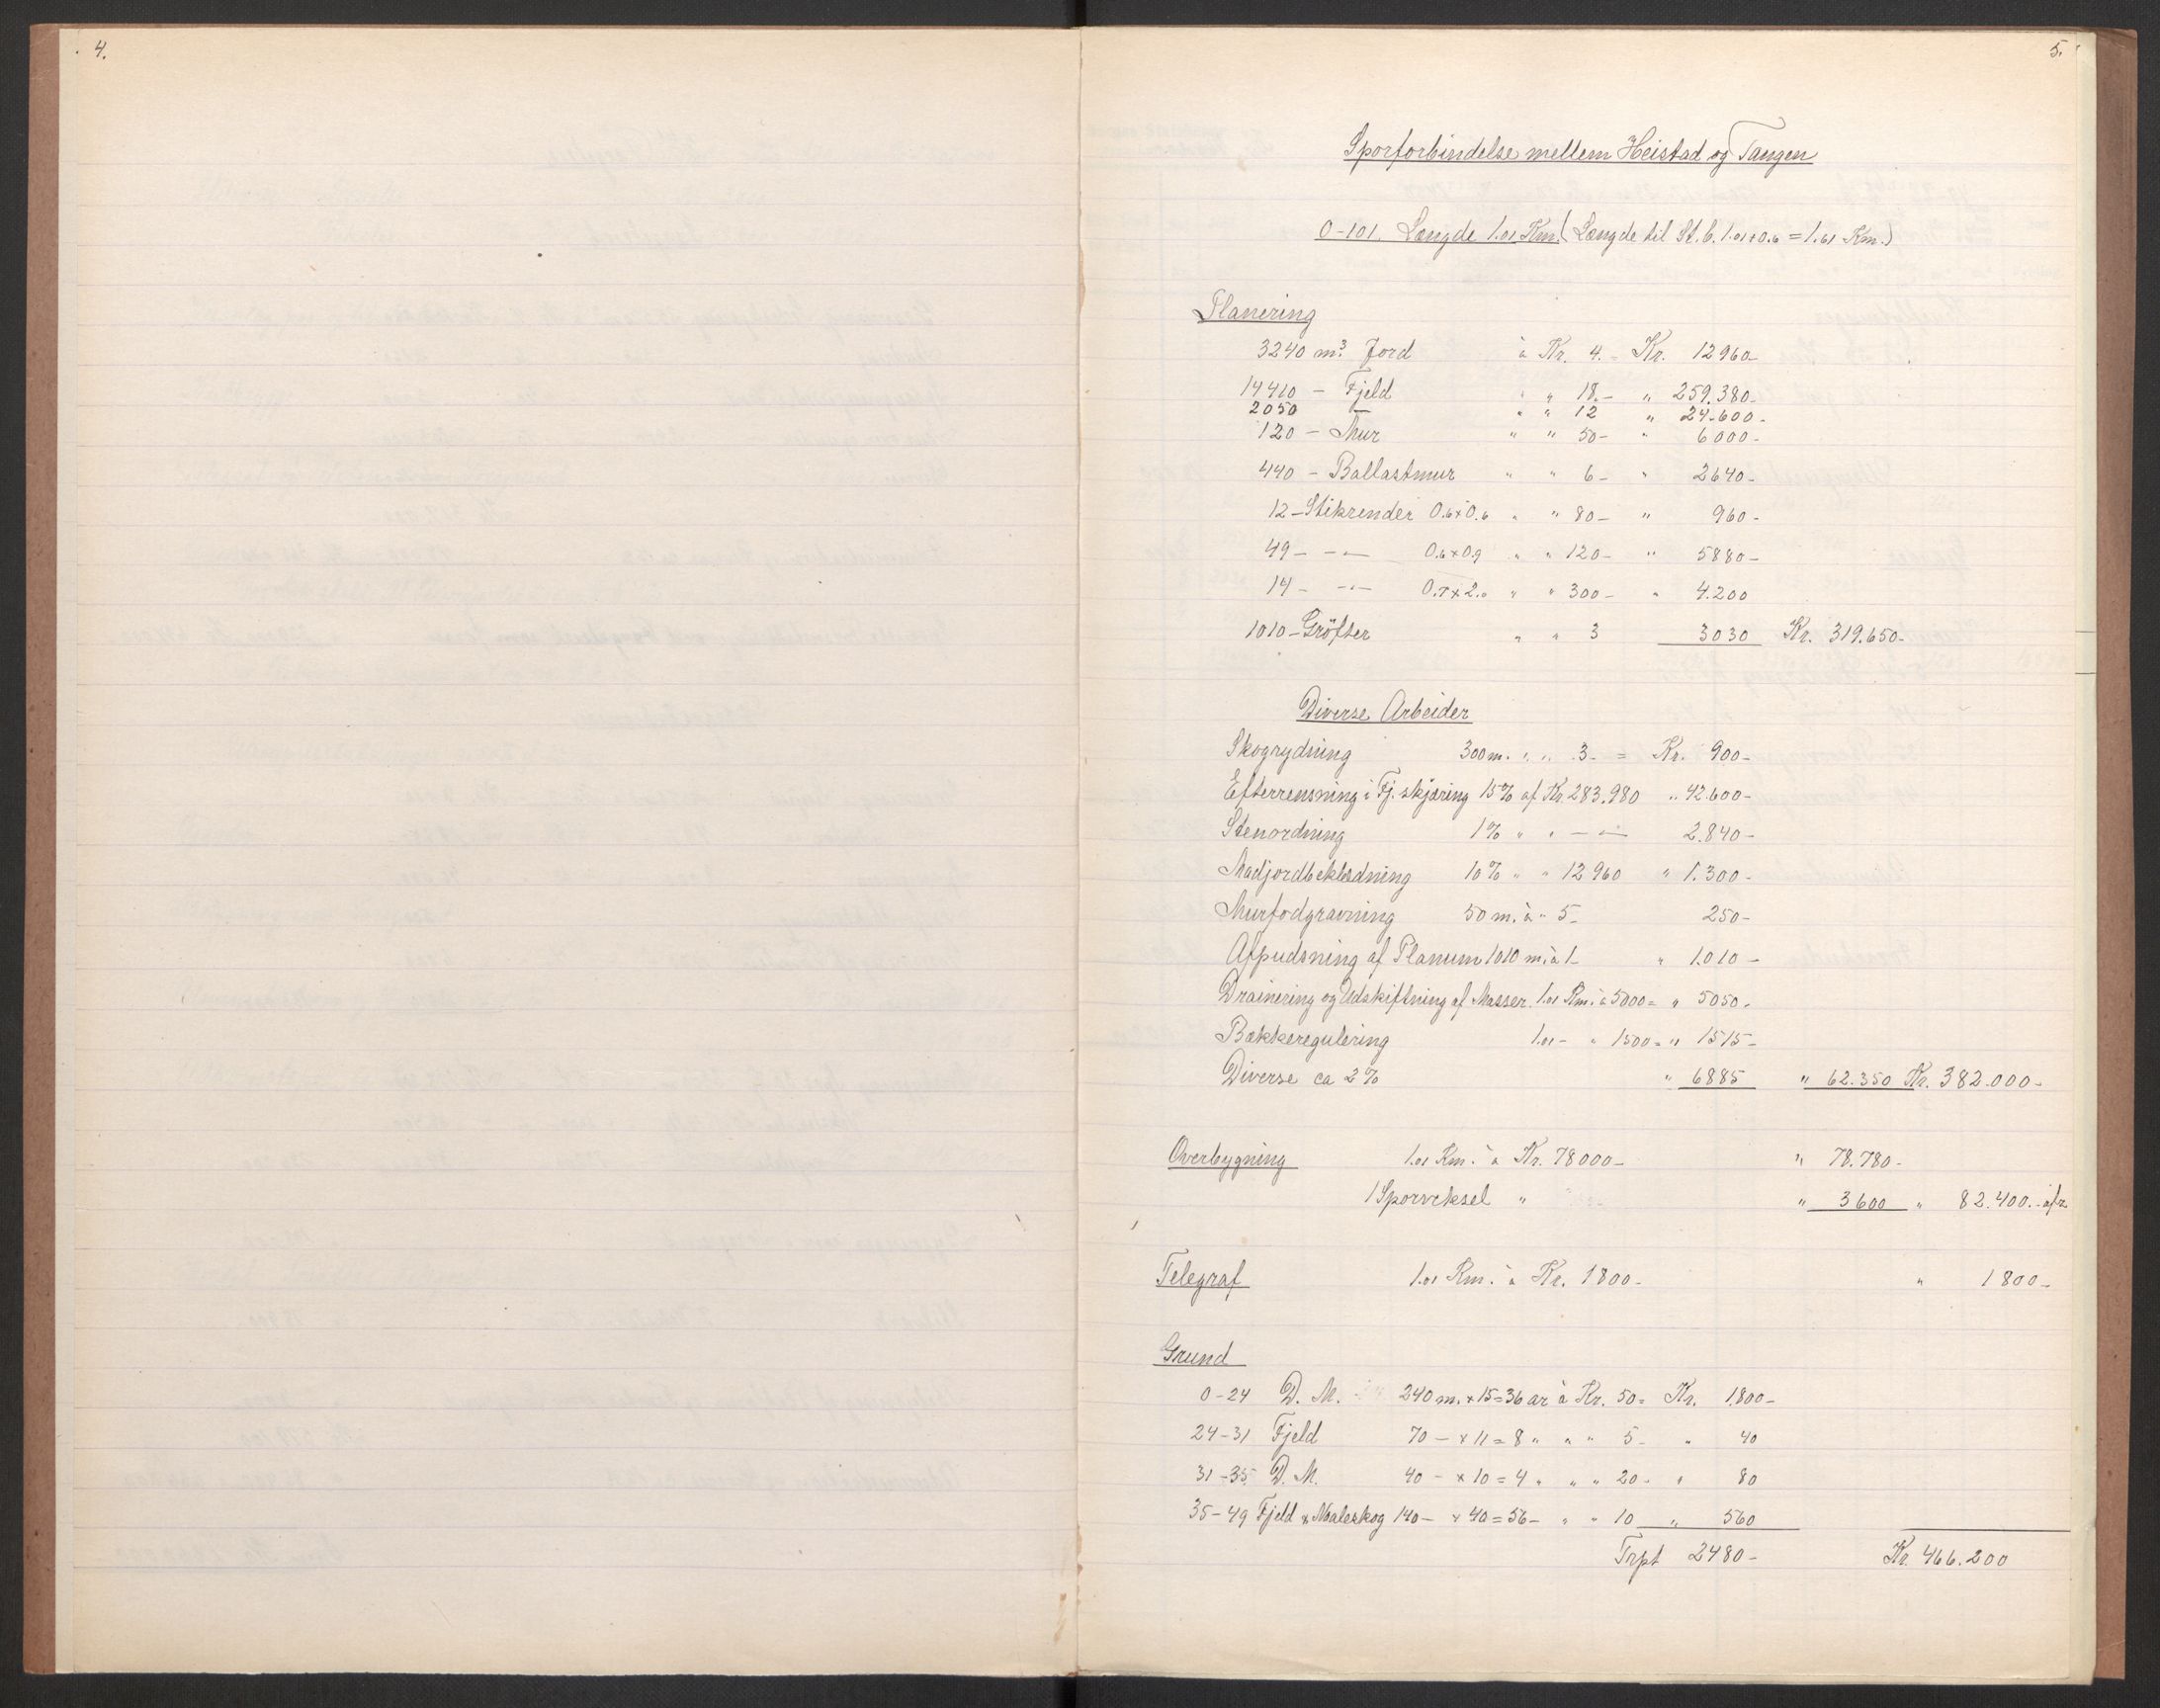 4.
5.
Sporforbindelse mellem Heistad og Tangen
0-101. Længde 1.01 Km. (Længde til St. b. 1.01+0.6 = 1.61 Km.)
Planering
3240 m³. Jord à Kr. 4.- Kr. 12960-
14410 - Fjeld " " 18.- " 259.380-
2050 — " " 12 " 24.600-
120 - Mur " " 50- " 6000-
440 - Ballastmur " " 6- " 2640-
12 - Stikrender 0.6x0.6 " " 80- " 960-
49 - -"- 0.6x0.9 " " 120- " 5880-
14 - -"- 0.7x2.0 " " 300- " 4.200
1010 - Gröfter " " 3 3030 Kr. 319.650-
Diverse Arbeider
Skogrydning 300 m. " " 3- = Kr. 900-
Efterrensning i Fj. skjæring 15% af Kr. 283.980 " 42.600-
Stenordning 1% " " -"- 2.840-
Madjordbeklædning 10% " " 12960 " 1.300-
Murfodgravning 50 m. à " 5- 250-
Afpudsning af Planum 1010 m. à 1- " 1.010-
Drainering og Udskiftning af Masser. 1.01 Km. à 5000= " 5050-
Bækkeregulering 1.01 - " 1500= " 1515-
Diverse ca 2% " 6885 " 62.350 Kr. 382.000-
Overbygning 1.01 Km. à Kr. 78000- " 78.780-
1 Sporveksel " " 3600 " 82.400.- afr.
Telegraf 1.01 Km. à Kr. 1800- " 1800-
Grund
0-24 D. M. 240 m. x 15=36 ar à Kr. 50= Kr. 1.800-
24-31 Fjeld 70 - x 11=8 " " " 5- " 40
31-35 D. M. 40 - x 10=4 " " " 20- " 80
35-49 Fjeld & Naaleskog 140 - x 40=56- " " 10 " 560
Trpt 2480- Kr. 466.200